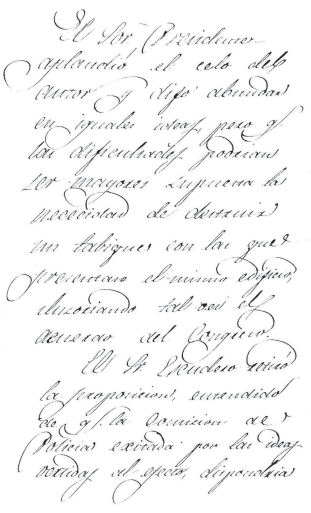 El Sör Presidente
aplaudió el celo del
autor y dijo abundar
en iguales ideas, pero q.
las dificultades podrian
ser mayores supuesta la
necesidad de destruir
un tabique con las que
presentase el mismo edificio,
ilusoriando tal vez el
acuerdo del Congreso.
El Sr. Escudero retiró
la proposicion, entendido
de q. la Comision de
Policia exitada por las ideas
vertidas al efecto, dispondria